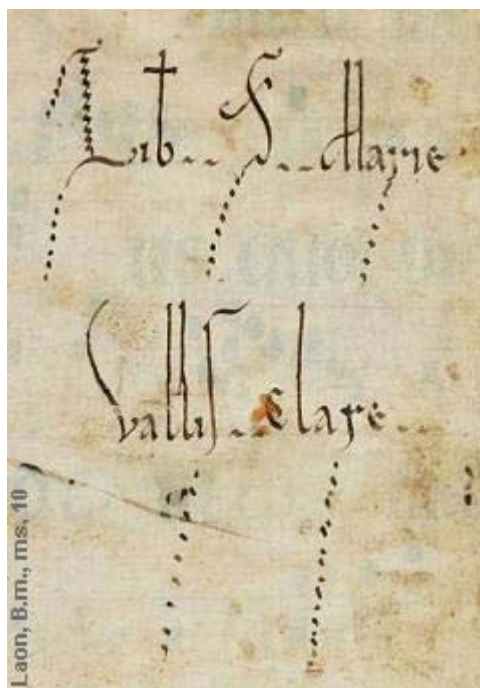 Lib S Marie
vallis clare
Laon, B.m., ms. 10